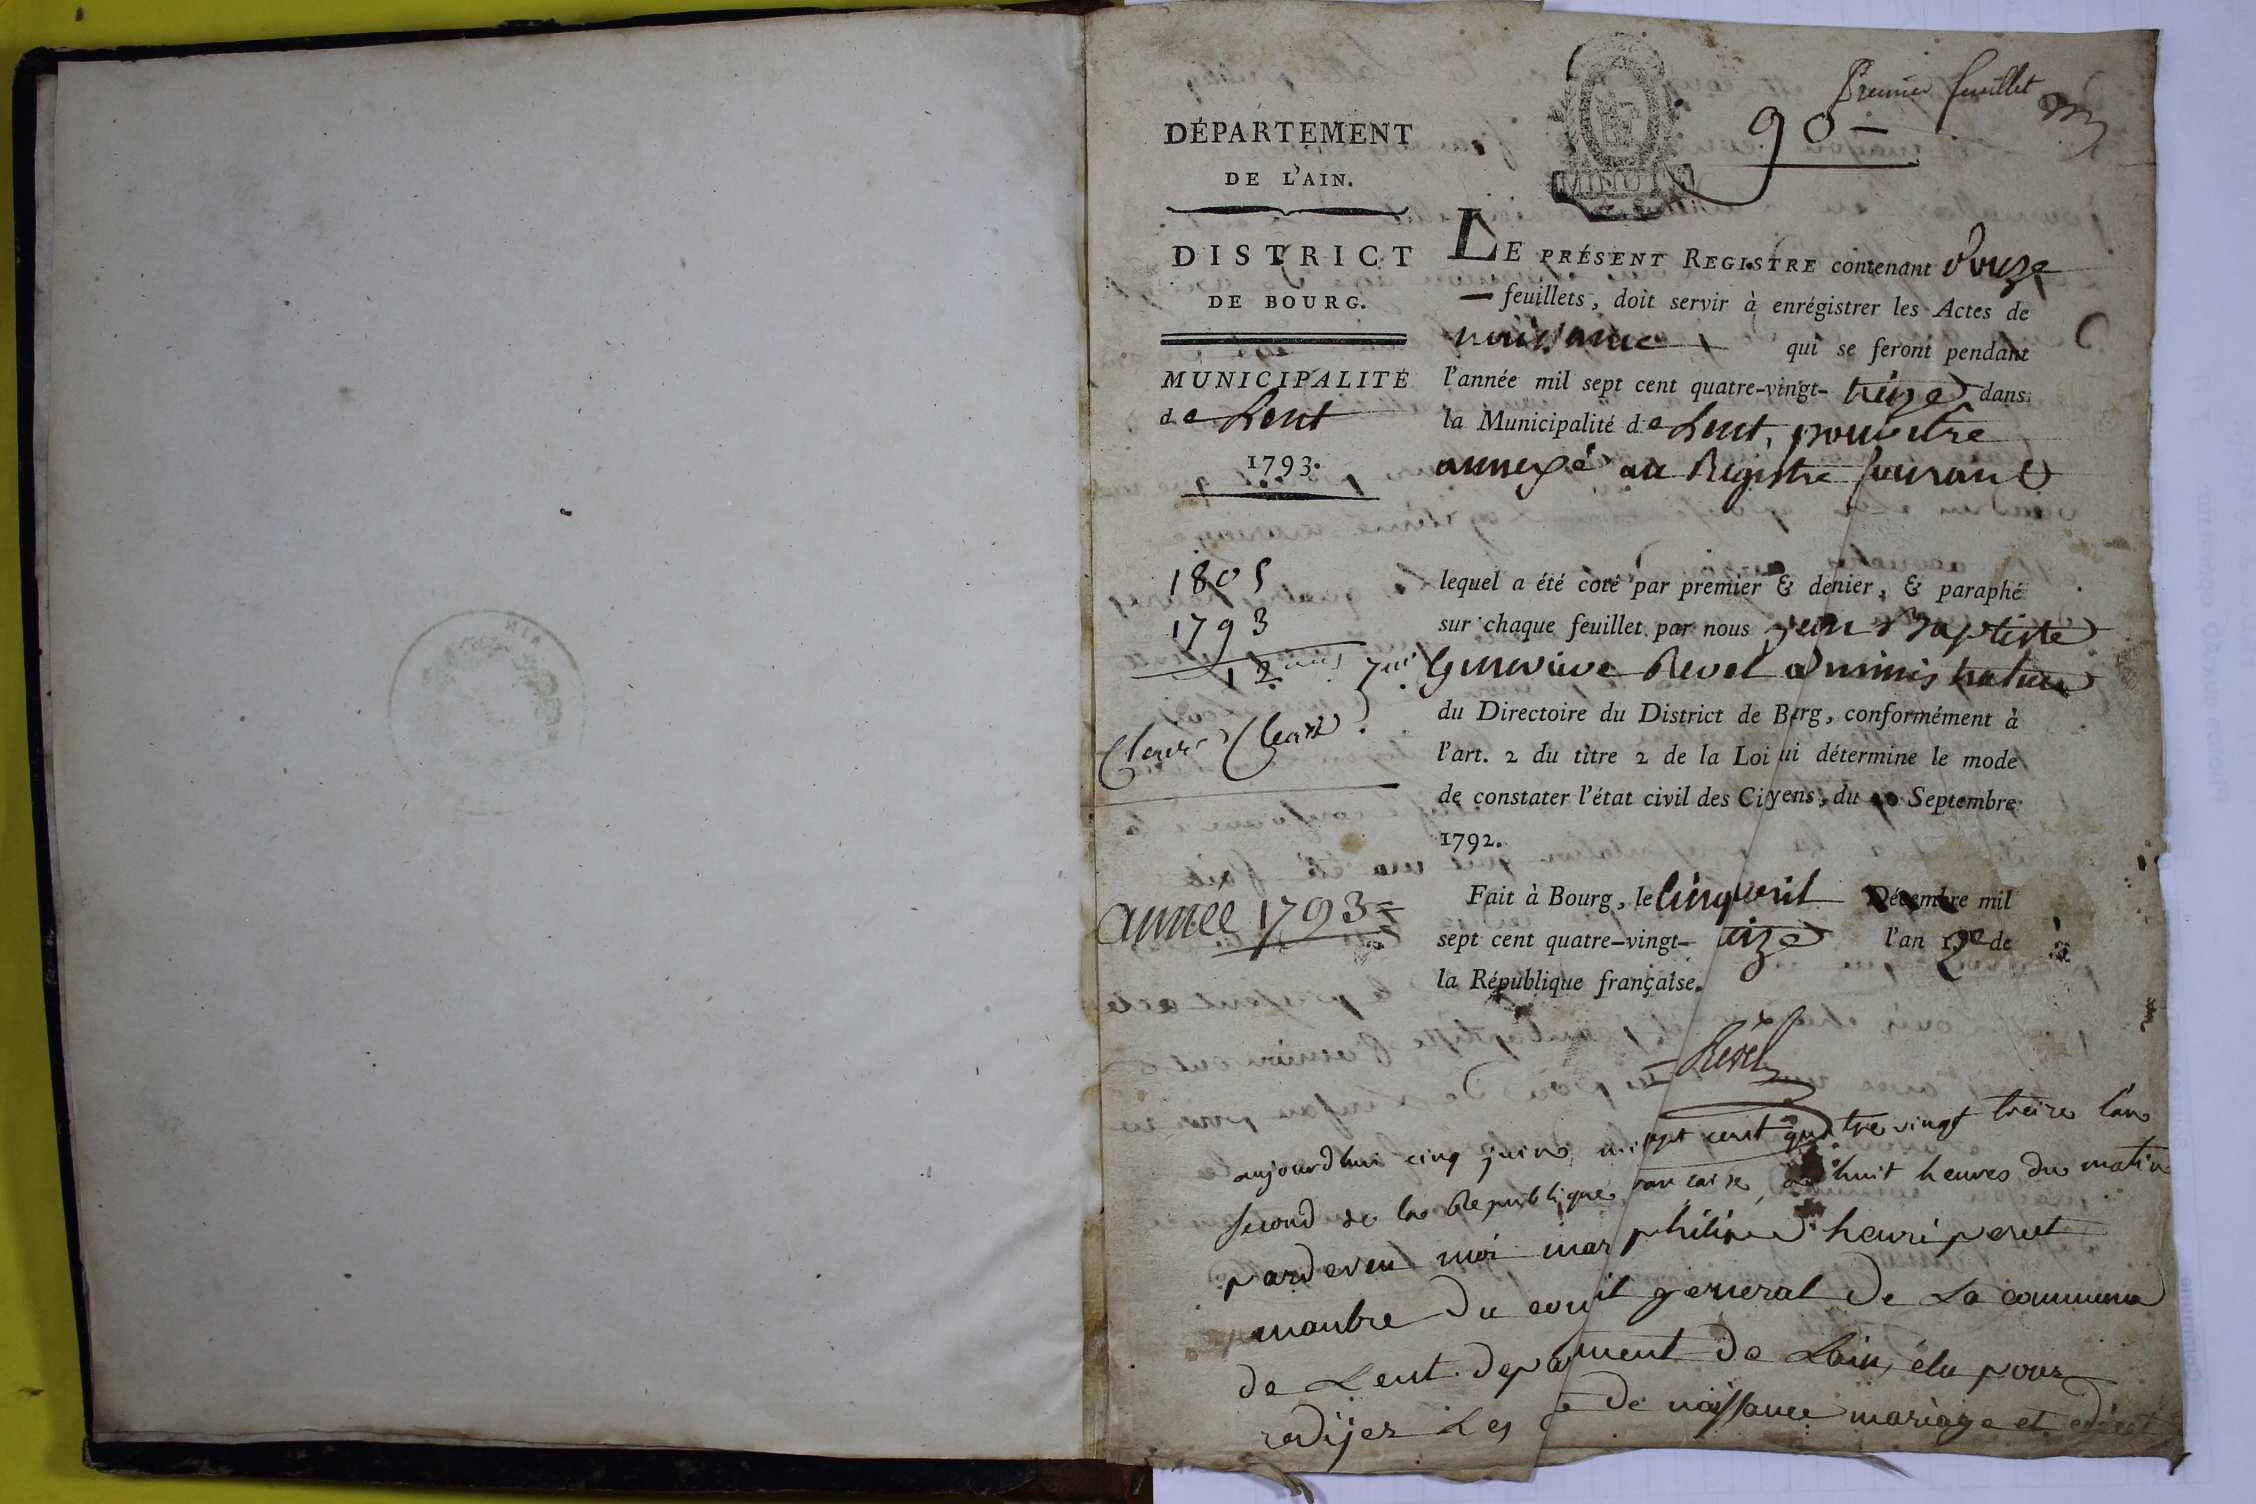 Premier feuillet
90
MINUT
DÉPARTEMENT
DE L'AIN.
DISTRICT
DE BOURG.
MUNICIPALITÉ
de Lent
1793.
1805
1793
12 ans
année 1793
LE PRÉSENT REGISTRE contenant douze
feuillets, doit servir à enrégistrer les Actes de
naissance qui se feront pendant
l'année mil sept cent quatre-vingt- treize dans
la Municipalité de Lent, pour être
annexé au Registre courant
lequel a été coté par premier & denier, & paraphé
sur chaque feuillet par nous jean Baptiste
Genevieve Revel administrateur
du Directoire du District de B rg, conformément à
l'art. 2 du titre 2 de la Loi ui détermine le mode
de constater l'état civil des Ci yens, du 20 Septembre
1792.
Fait à Bourg, le cinq avril Décembre mil
sept cent quatre-vingt- eize l'an 2e de
la République française.
Revel
aujourdhui cinq juin mi sept cent quatre vingt treize l'an
second de la Republique ran caise, a huit heures du matin
pardeven moi mar philipe henri perret
manbre du con il general de La commune
de Lent depa ment de Lain, élu pour
redijer Les de naissance mariage et